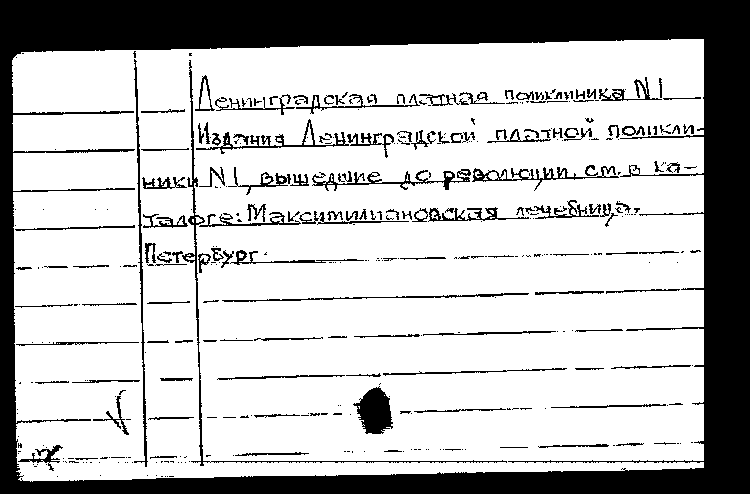 Ленинградская платная поликлиника N1
Издания Ленинградской платной поликли-
ники N1, вышедшие до революции, см. в ка-
талоге: Максимилиановская лечебница.
Петербург.